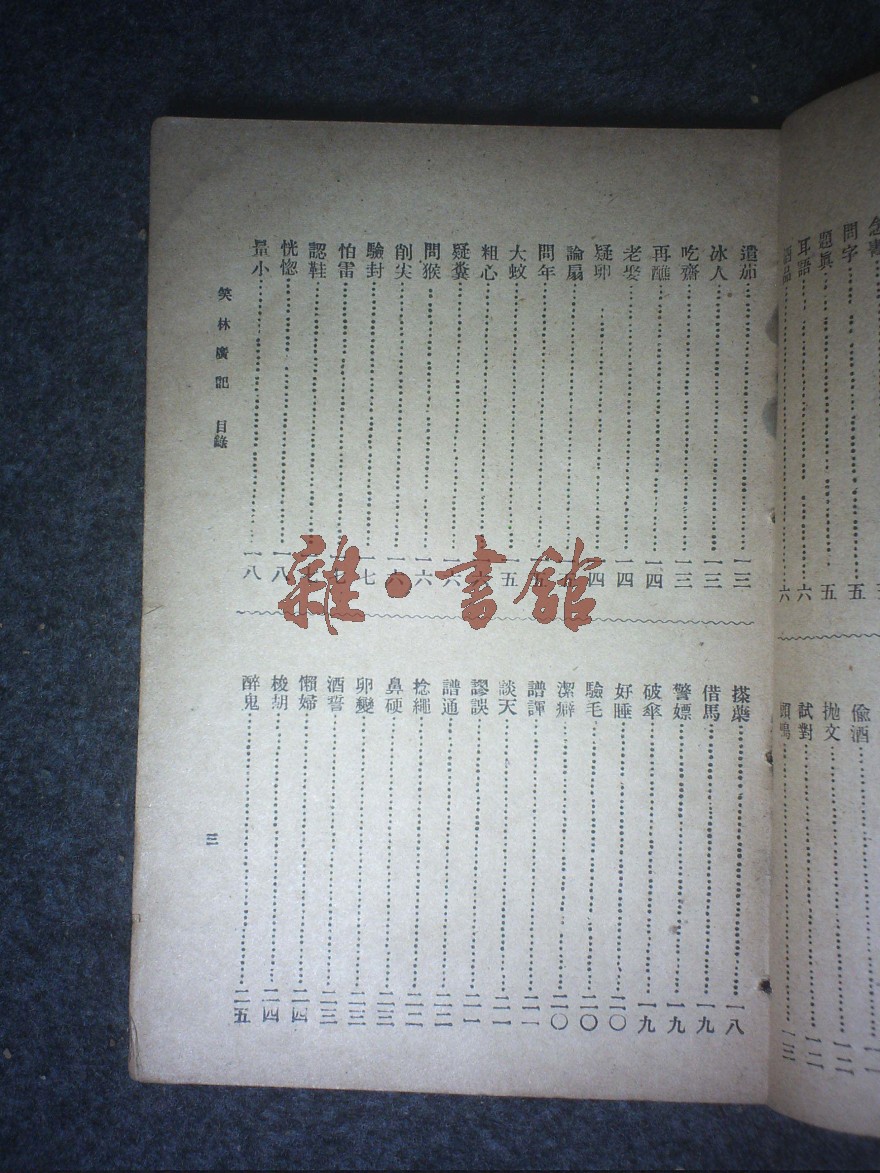 念書
問字……五
題真……五
耳語……六
酒品……六
偷酒
拋文……一二
試對……一二
頭鳴……一三
遣茄……一三
冰人……一三
吃齋……一三
再醮……一四
老娶……一四
疑卵……一四
論扇
問年……一五
大蚊……一五
粗心
疑糞……一六
問猴……一六
削尖……一六
驗封……一七
怕雷
認鞋
恍惚……一八
量小……一八
搽藥……一八
借馬……一九
警嫖……一九
破傘……一九
好睡……二〇
驗毛……二〇
潔癖……二〇
譜諢……二一
談天……二一
謬誤……二一
譜通……二二
捻繩……二二
鼻硬……二三
卵變……二三
酒誓……二三
懶婦……二四
梭胡……二四
醉鬼……二五
笑林廣記 目錄
三
雜·書館